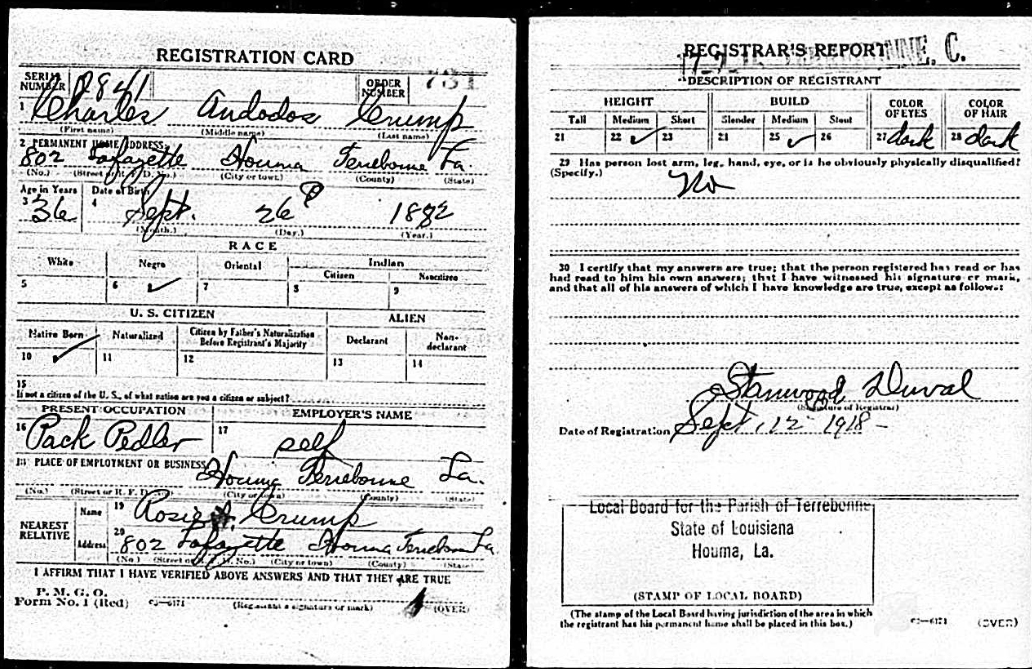 REGISTRATION CARD
SERIAL NUMBER
ORDER NUMBER 731
1 Charles Andodos Crump
(First name) (Middle name) (Last name)
2 PERMANENT HOME ADDRESS:
802 Lafayette Houma Terrebonne La.
(No.) (Street or R. F. D. No.) (City or town) (County) (State)
Age in Years Date of Birth
3 36 4 Sept. 26 1882
(Month.) (Day.) (Year.)
RACE
White Negro Oriental Indian
Citizen Noncitizen
5 6 ✓ 7 8 9
U. S. CITIZEN ALIEN
Native Born Naturalized Citizen by Father's Naturalization Before Registrant's Majority Declarant Non-declarant
10 ✓ 11 12 13 14
15
If not a citizen of the U. S., of what nation are you a citizen or subject?
PRESENT OCCUPATION EMPLOYER'S NAME
16 Pack Pedler 17 self
18 PLACE OF EMPLOYMENT OR BUSINESS:
Houma Terrebonne La.
(No.) (Street or R. F. D. No.) (City or town) (County) (State)
NEAREST RELATIVE
Name 19 Rosie Crump
Address 20 802 Lafayette Houma Terrebonne La
(No.) (Street or R. F. D. No.) (City or town) (County) (State)
I AFFIRM THAT I HAVE VERIFIED ABOVE ANSWERS AND THAT THEY ARE TRUE
P. M. G. O.
Form No. 1 (Red) (Registrant's signature or mark) (OVER)
REGISTRAR'S REPORT
DESCRIPTION OF REGISTRANT
HEIGHT BUILD COLOR OF EYES COLOR OF HAIR
Tall Medium Short Slender Medium Stout
21 22 ✓ 23 24 25 ✓ 26 27 dark 28 dark
29 Has person lost arm, leg, hand, eye, or is he obviously physically disqualified?
(Specify.)
No
30 I certify that my answers are true; that the person registered has read or has
had read to him his own answers; that I have witnessed his signature or mark,
and that all of his answers of which I have knowledge are true, except as follows:
Stanwood Duval
(Signature of Registrar)
Date of Registration Sept. 12 1918
Local Board for the Parish of Terrebonne
State of Louisiana
Houma, La.
(STAMP OF LOCAL BOARD)
(The stamp of the Local Board having jurisdiction of the area in which
the registrant has his permanent home shall be placed in this box.)
(OVER)